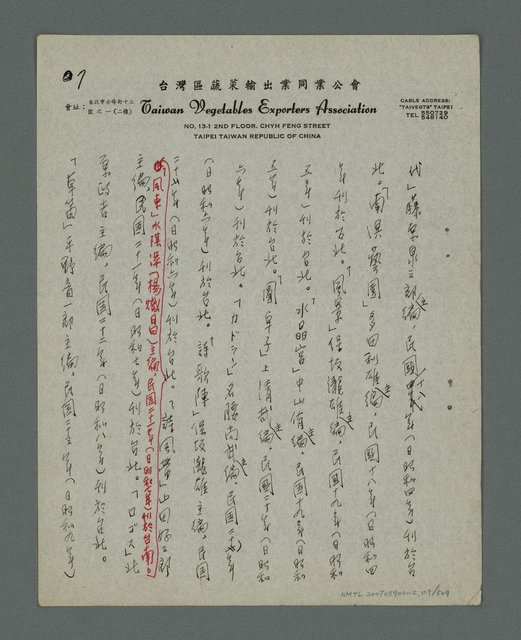 07
台灣區蔬菜輸出業同業公會
會址：台北市赤峰街十三號之一(二樓)
Taiwan Vegetables Exporters Association
NO, 13-1 2ND FLOOR. CHYH FENG STREET
TAIPEI TAIWAN REPUBLIC OF CHINA
CABLE ADDRESS:
"TAIVEGTS" TAIPEI
TEL 550729
548140
代」藤原泉三郎主編，民國十八年(日昭和四年)刊於台
北。「南溟藝園」多田利雄主編，民國十八年(日昭和四
年)刊於台北。「風景」保坂瀧雄主編，民國十九年(日昭和
五年)刊於台北。「水晶宮」中山侑主編，民國十九年(日昭和
五年)刊於台北。「圓卓子」上清哉主編，民國二十年(日昭和
六年)刊於台北。「カドラン」名腰尚武主編，民國二十年
(日昭和六年)刊於台北。「詩歌陣」保坂瀧雄主編，民國
二十年(日昭和六年)刊於台北。「圓卓」上田好三郎
「風車」水蔭萍(楊熾昌)主編，民國二十二年(日昭和八年)刊於台南。
主編，民國二十一年(日昭和七年)刊於台北。「ロゴス」北
原政吉主編，民國二十二年(日昭和八年)刊於台北。
「草笛」平野音一郎主編，民國二十三年(日昭和九年)
NMTL 20090590002, 09/509